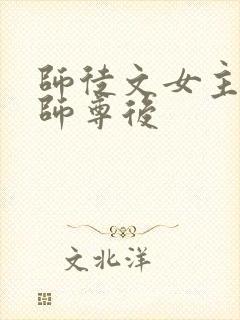 師徒文女主
師尊後
文北洋